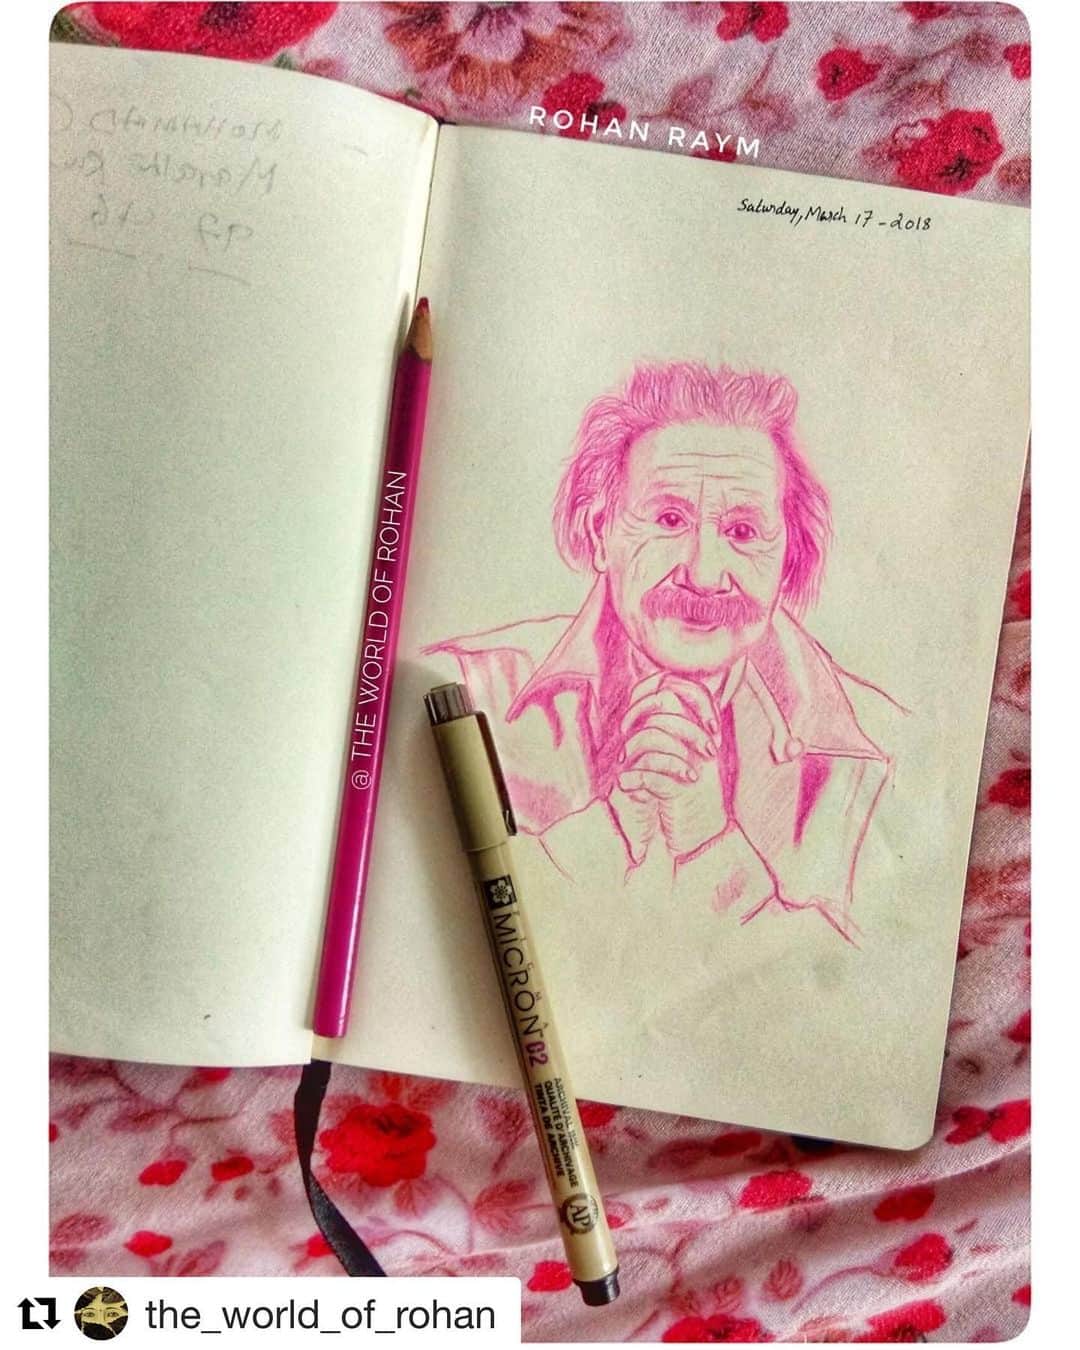 ROHAN RAYM
Saturday, March 17 - 2018
@ THE WORLD OF ROHAN
MICRON 02
ARCHIVAL INK
QUALITÉ D'ARCHIVAGE
TINTA DE ARCHIVE
AP
the_world_of_rohan